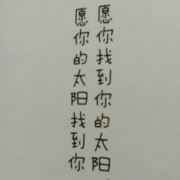 愿你找到你的太阳
愿你的太阳找到你